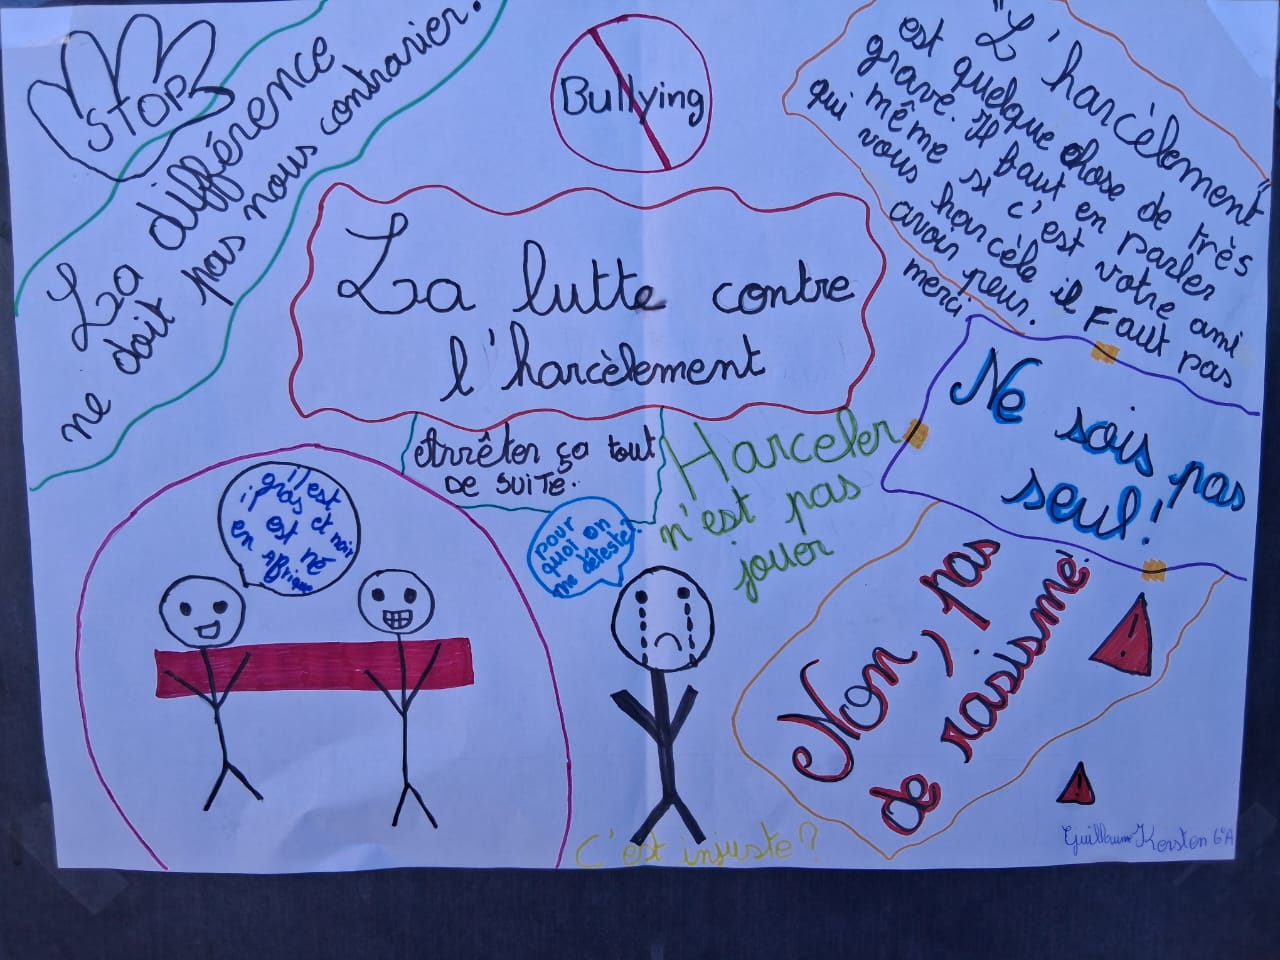 STOP
La différence
ne doit pas nous contrarier.
Bullying
"L'harcèlement"
est quelque chose de très
grave. Il faut en parler
même si c'est votre ami
qui vous harcèle il Faut pas
avoir peur.
merci
La lutte contre
l'harcèlement
Arrêter ça tout
DE SUITE.
Harceler
n'est pas
jouer
Ne sois pas
seul!
il est
gros et noir
est né
en Afrique
pour
quoi on
me déteste?
Non, pas
de rasisme!
C'est injuste?
Guillaume Kersten 6°A